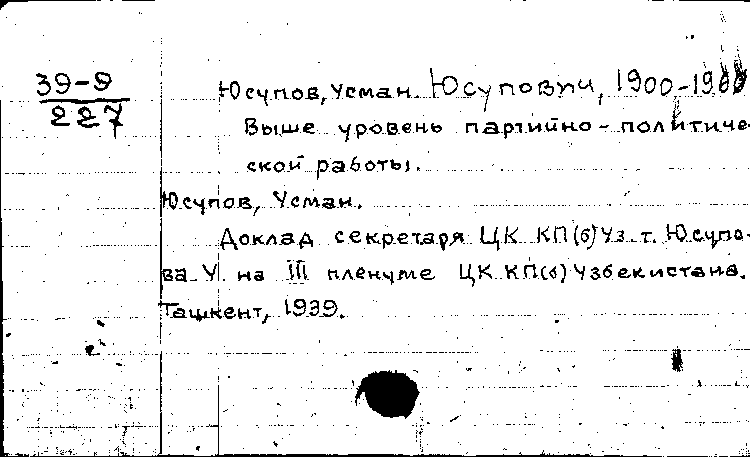 39-9
227
Юсупов, Усман. Юсупович, 1900-1966
Выше уровень партийно-политиче-
ской работы.
Юсупов, Усман.
Доклад секретаря ЦК КП(б)Уз. т. Юсупо-
ва У. на III пленуме ЦК КП(б) Узбекистана.
Ташкент, 1939.